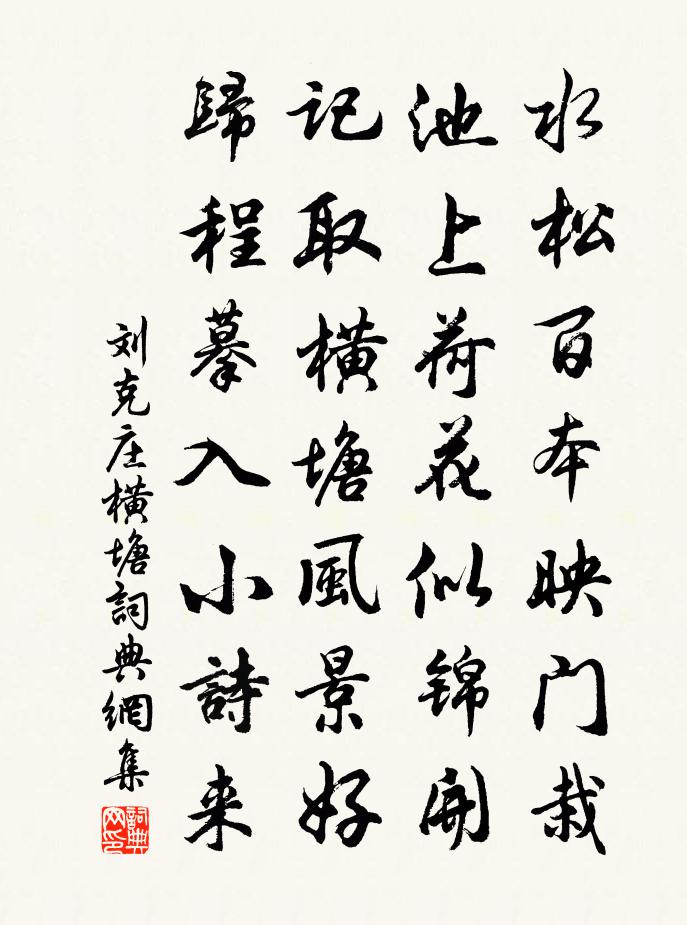 水松百本映门栽
池上荷花似锦開
记取横塘風景好
歸程摹入小詩来
刘克庄横塘詞典網集
詞典网印